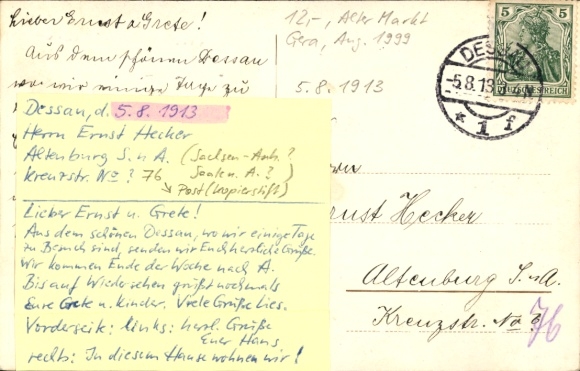 Lieber Ernst u Grete!
Aus dem schönen Dessau
wo wir einige Tage zu
12,-, Alter Markt
Gera, Aug. 1999
5.8.1913
5 5
DEUTSCHES REICH
DESSAU
-5.8.13
* 1 f
Dessau, d. 5.8.1913
Herrn Ernst Hecker
Altenburg S. u A. (Sachsen-Anh.?
Kreuzstr. No ? 76 Saale u. A.?)
↳ Post (Kopierstift)
Lieber Ernst u. Grete!
Aus dem schönen Dessau, wo wir einige Tage
zu Besuch sind, senden wir Euch herzliche Grüße.
Wir kommen Ende der Woche nach A.
Bis auf Wiedersehen grüßt nochmals
Eure Grete u. Kinder. Viele Grüße Lies.
Vorderseite: links: herzl. Grüße
Euer Hans
rechts: In diesem Hause wohnen wir!
rnst Hecker
Altenburg S.-A.
Kreuzstr. No
76